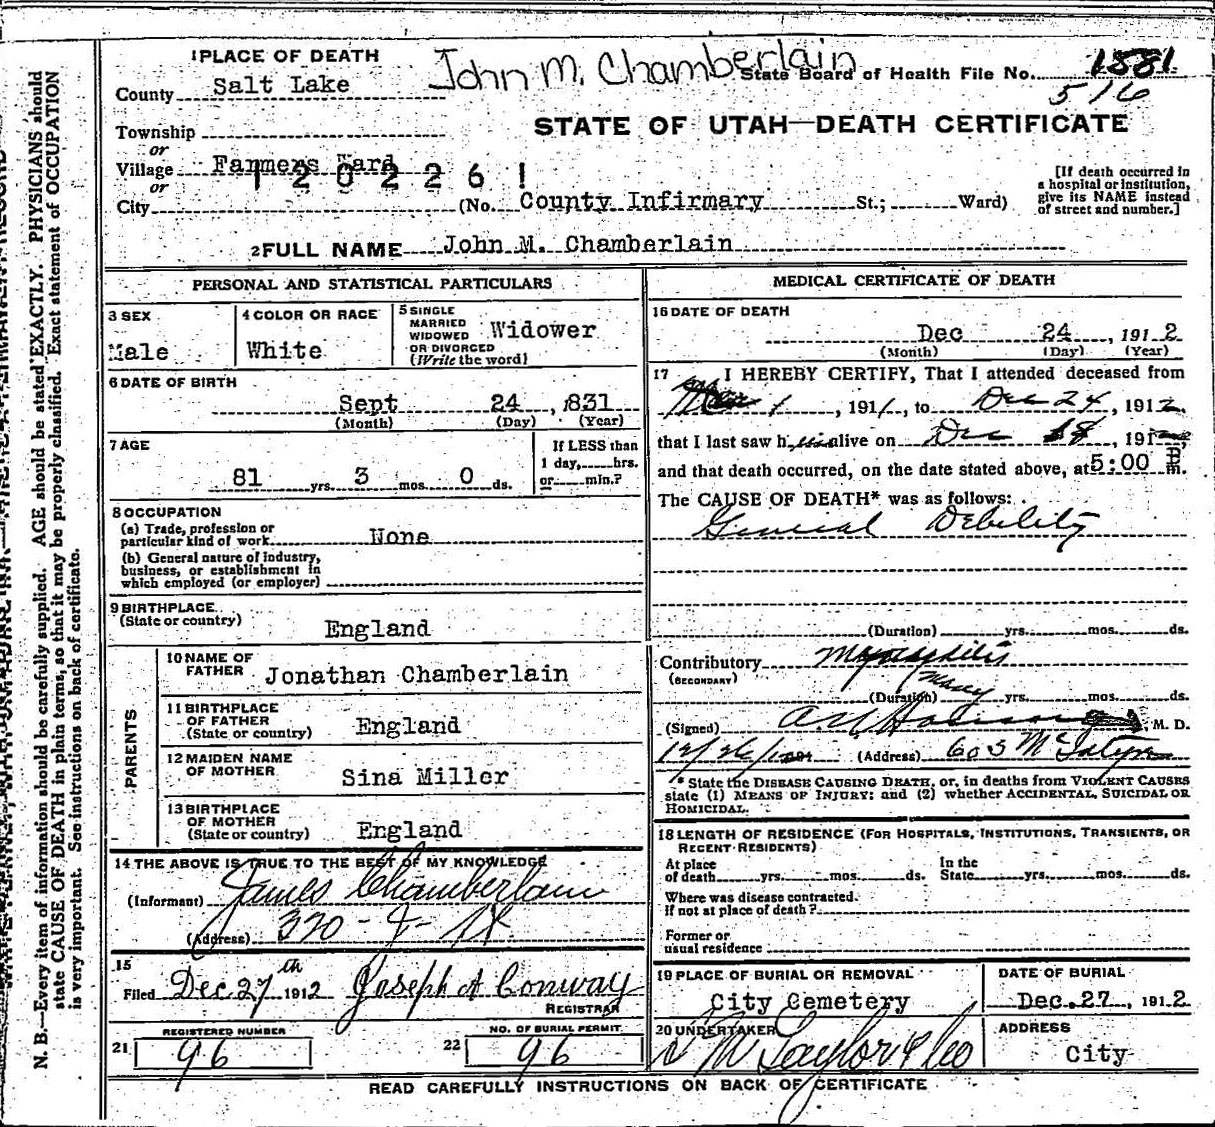 John M. Chamberlain
1 PLACE OF DEATH
County Salt Lake
State Board of Health File No. 1881
516
Township
or
Village Farmers Ward
or
120226!
City
STATE OF UTAH—DEATH CERTIFICATE
(No. County Infirmary St.; Ward)
[If death occurred in
a hospital or institution,
give its NAME instead
of street and number.]
2 FULL NAME John M. Chamberlain
PERSONAL AND STATISTICAL PARTICULARS
3 SEX
Male
4 COLOR OR RACE
White
5 SINGLE
MARRIED
WIDOWED
OR DIVORCED
(Write the word)
Widower
6 DATE OF BIRTH
Sept 24, 1831
(Month) (Day) (Year)
7 AGE
81 yrs. 3 mos. 0 ds.
If LESS than
1 day, hrs.
or min.?
8 OCCUPATION
(a) Trade, profession or
particular kind of work None
(b) General nature of industry,
business, or establishment in
which employed (or employer)
9 BIRTHPLACE
(State or country)
England
PARENTS
10 NAME OF
FATHER Jonathan Chamberlain
11 BIRTHPLACE
OF FATHER
(State or country) England
12 MAIDEN NAME
OF MOTHER Sina Miller
13 BIRTHPLACE
OF MOTHER
(State or country) England
14 THE ABOVE IS TRUE TO THE BEST OF MY KNOWLEDGE
(Informant) James Chamberlain
(Address) 370 - 4 -
15
Filed Dec. 27th 1912 Joseph A Conway
REGISTRAR
REGISTERED NUMBER
21 96
NO. OF BURIAL PERMIT
22 96
MEDICAL CERTIFICATE OF DEATH
16 DATE OF DEATH
Dec 24, 1912
(Month) (Day) (Year)
17 I HEREBY CERTIFY, That I attended deceased from
1, 1911, to Dec 24, 1912.
that I last saw him alive on Dec, 191
and that death occurred, on the date stated above, at 5:00 P m.
The CAUSE OF DEATH* was as follows:
General Debility
(Duration) yrs. mos. ds.
Contributory
(SECONDARY)
(Duration) many yrs. mos. ds.
(Signed) M. D.
12/26/ (Address) 603 McIntyre
* State the DISEASE CAUSING DEATH, or, in deaths from VIOLENT CAUSES
state (1) MEANS OF INJURY; and (2) whether ACCIDENTAL, SUICIDAL OR
HOMICIDAL.
18 LENGTH OF RESIDENCE (FOR HOSPITALS, INSTITUTIONS, TRANSIENTS, OR
RECENT RESIDENTS)
At place
of death yrs. mos. ds.
In the
State yrs. mos. ds.
Where was disease contracted.
If not at place of death?
Former or
usual residence
19 PLACE OF BURIAL OR REMOVAL
City Cemetery
DATE OF BURIAL
Dec. 27, 1912
20 UNDERTAKER
S M Taylor & Co
ADDRESS
City
READ CAREFULLY INSTRUCTIONS ON BACK OF CERTIFICATE
N. B.—Every item of information should be carefully supplied. AGE should be stated EXACTLY. PHYSICIANS should
state CAUSE OF DEATH in plain terms, so that it may be properly classified. Exact statement of OCCUPATION
is very important. See instructions on back of certificate.